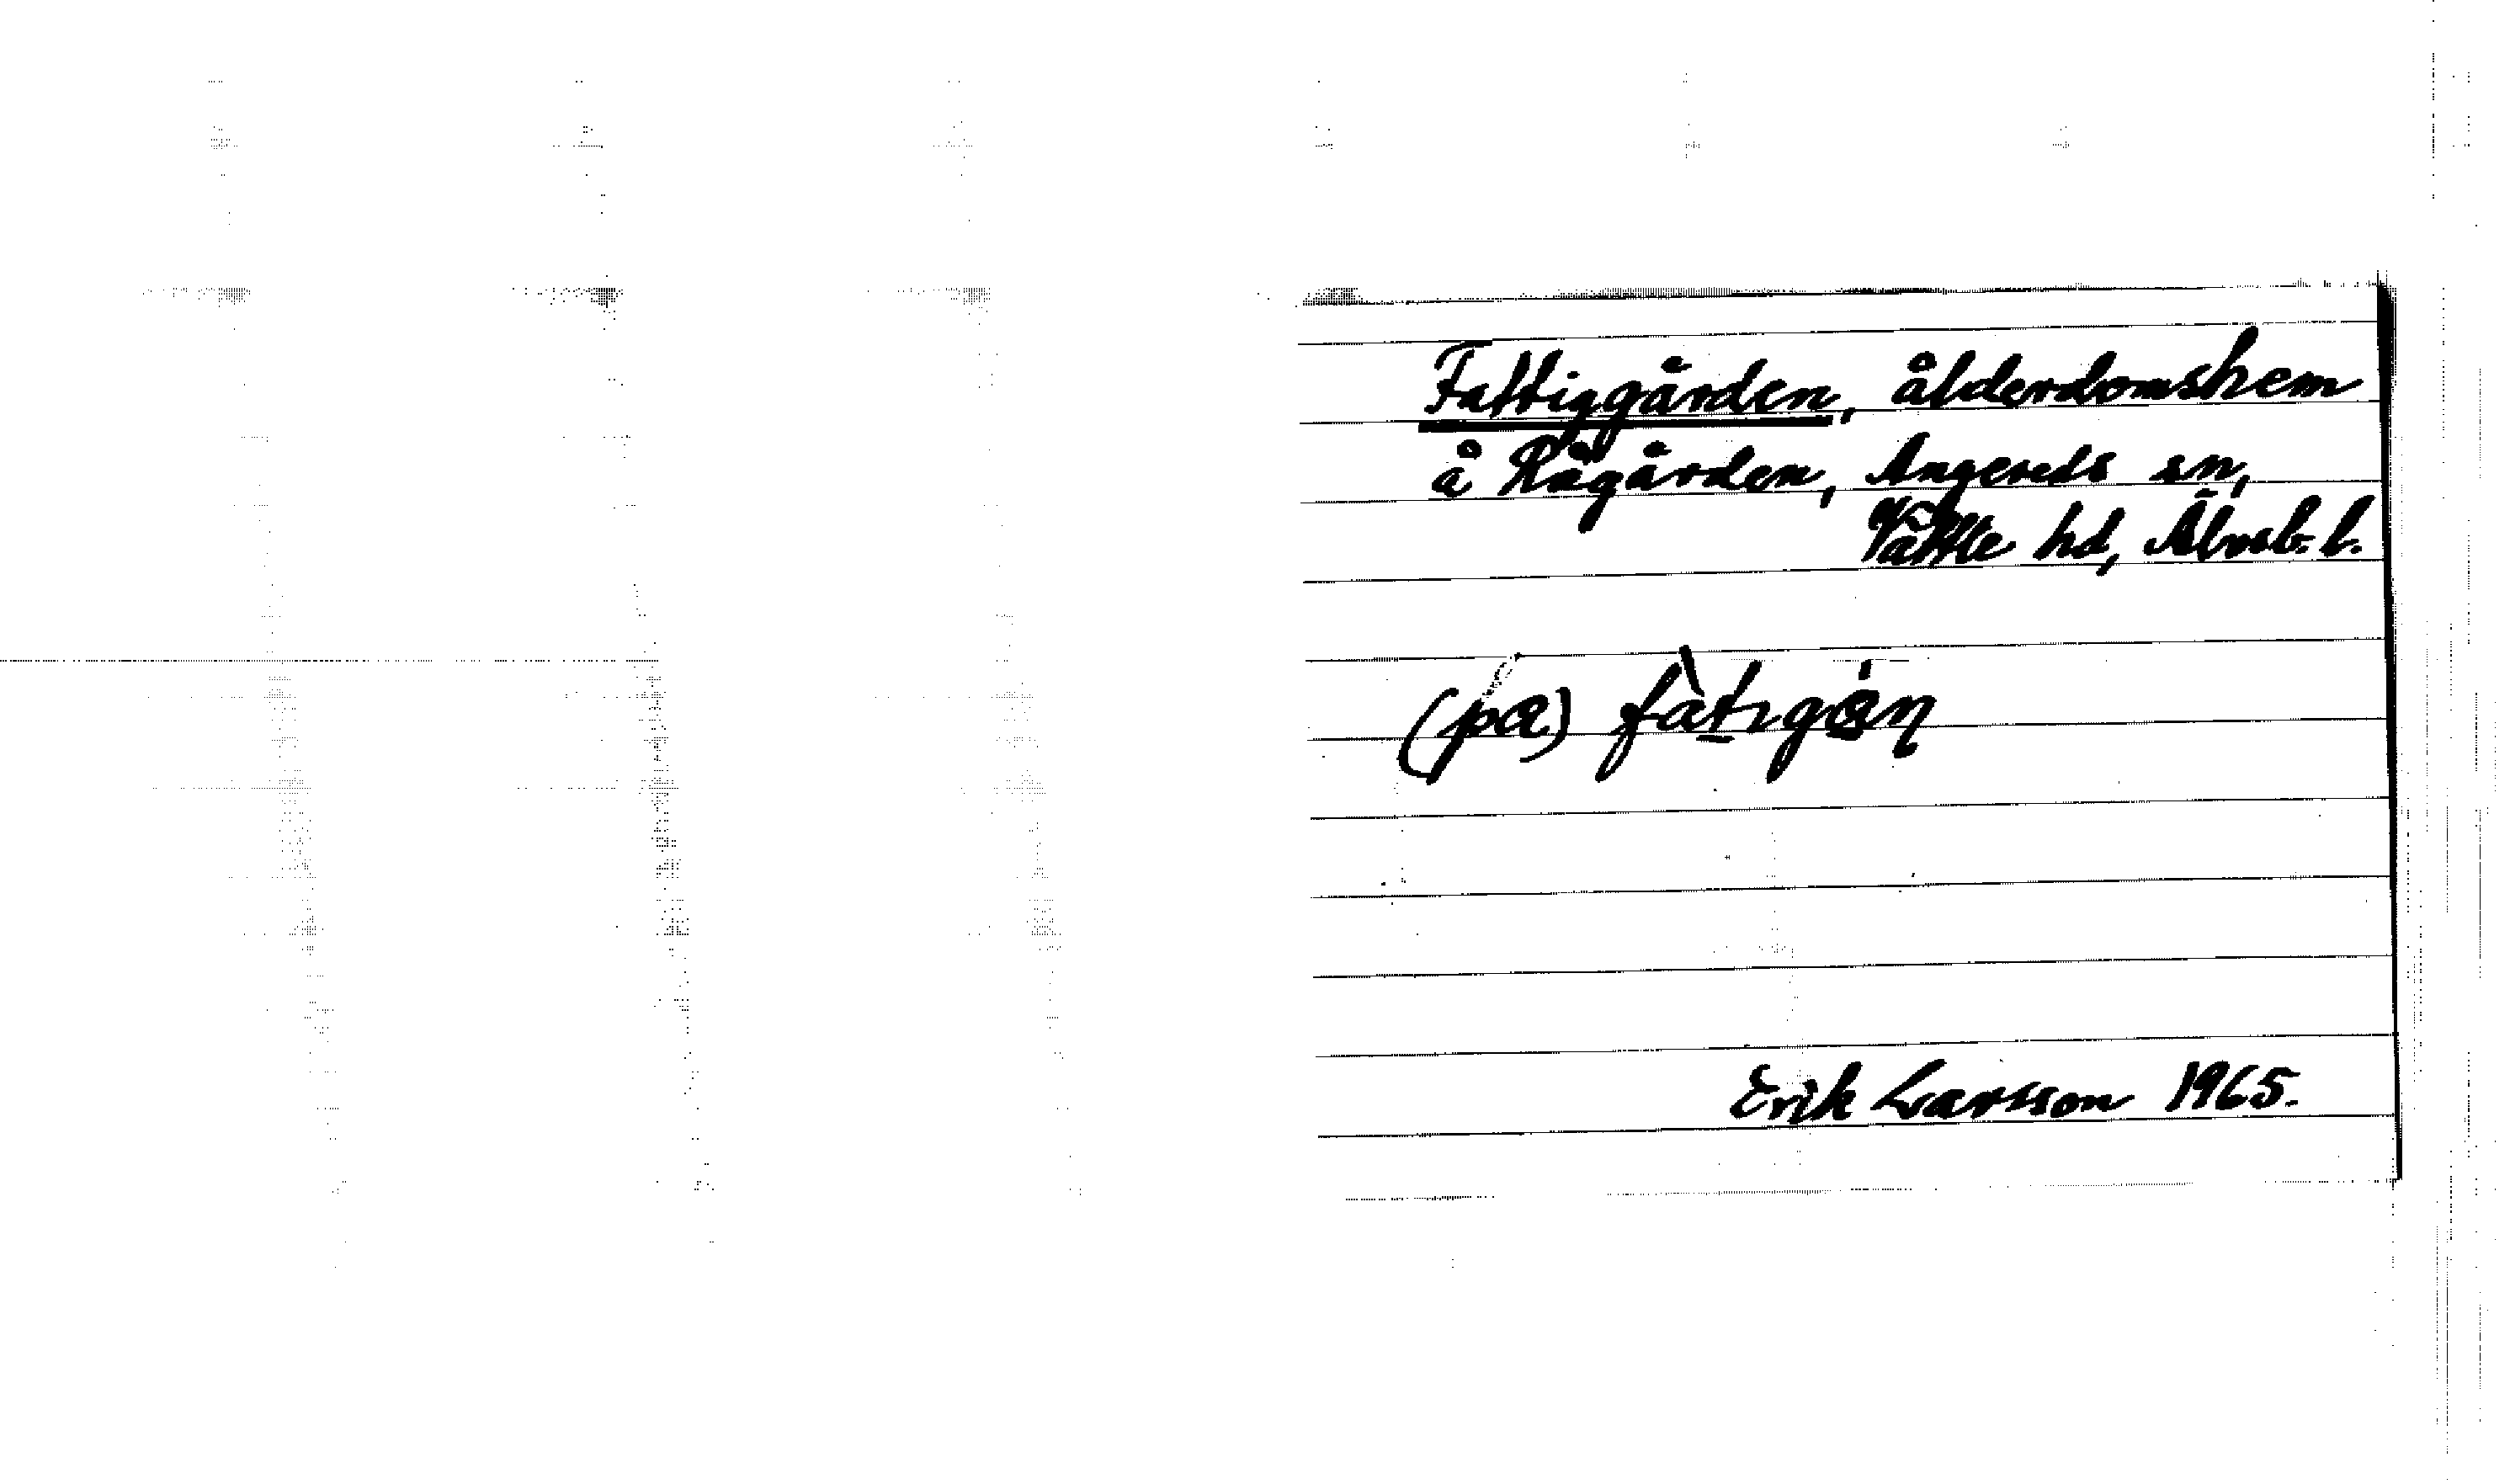 Fattiggården, ålderdomshem
å Rågården, Angereds sn,
Vättle hd, Älvsb. l.
(pɑ)
Erik Larsson 1965.